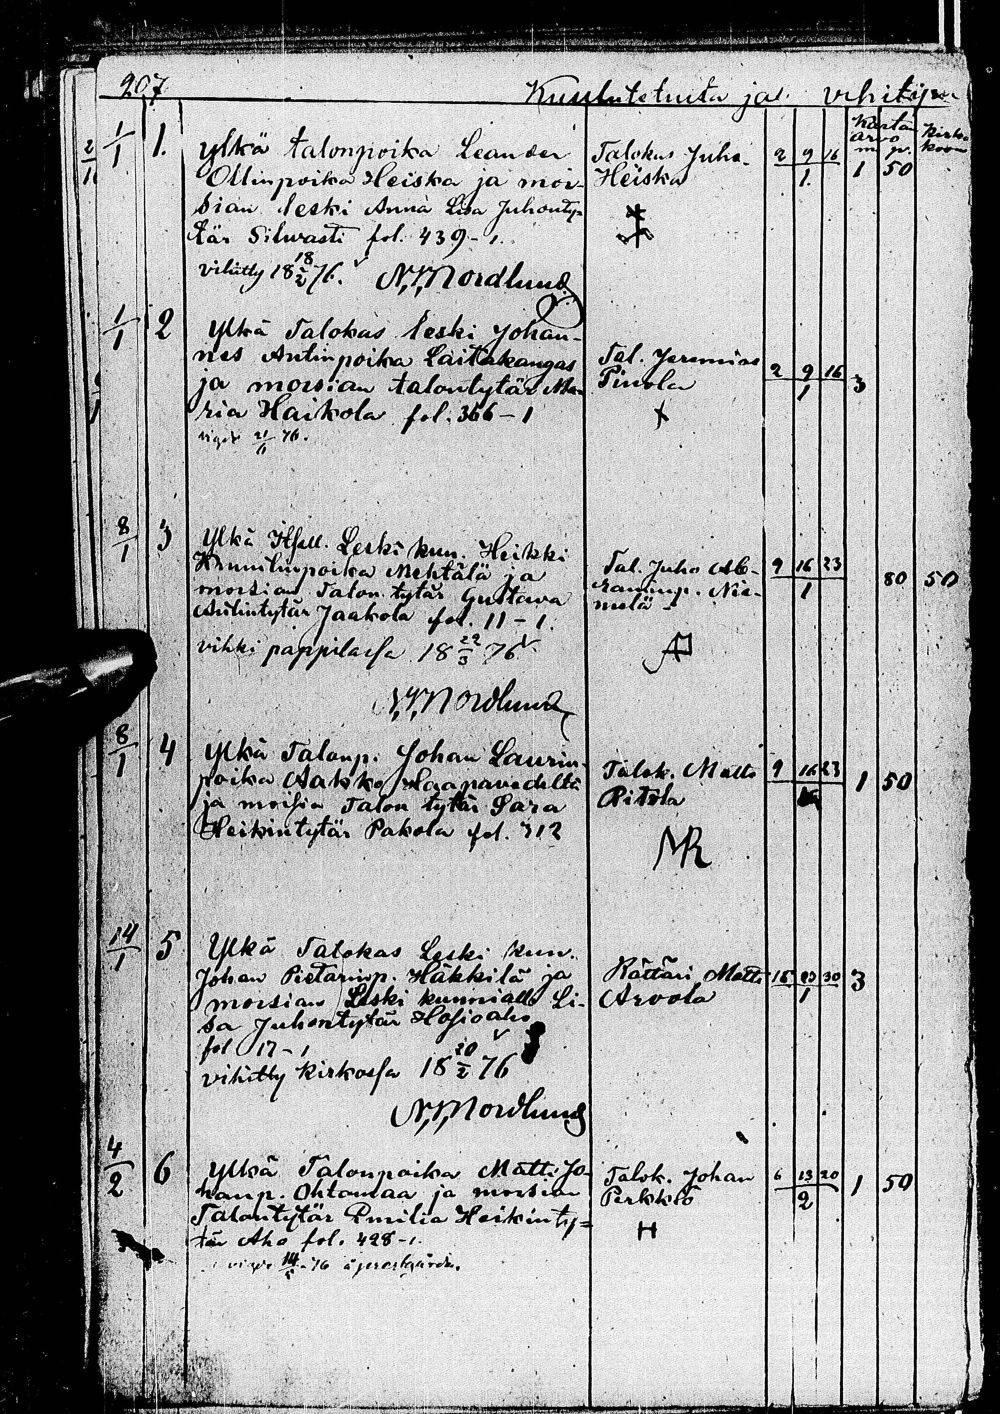 207
Kuulutetuita ja vihityi
Kartan arvo m. p.
Kirkkoon
1/1 1. Ylkä talonpoika Leander
Ollinpoika Heiska ja mor-
sian leski Anna Lisa Juhonty-
tär Silwasti fol. 439-1.
vihitty 18 18/2 76. N. Nordlund
Talokas Juho
Heiska
2 9 16
1
1 50
1/1 2 Ylkä Talokas leski Johan-
nes Antinpoika Laitakangas
ja morsian talontytär Ma-
ria Haikola fol. 366-1
76.
Tal. Jeremias
Pinola
2 9 16
1
3
8/1 3 Ylkä Leski kun. Heikki
Mehtälä ja
morsian Talon tytär Gustawa
Antintytär Jaakola fol. 11-1.
vihki pappilassa 18 22/3 76
N. Nordlund
Tal. Juho Ab-
raminp. Nie-
melä
9 16 23
1
80 50
8/1 4 Ylkä Talonp. Johan Laurin-
poika Aakko Haapavedeltä
ja morsia Talon tytär Sara
Heikintytär Pakola fol. 312
Talok. Matti
Ritola
MR
9 16 23
1 50
14/1 5 Ylkä Talokas Leski kun.
Johan Pietarinp. Häkkilä ja
morsian Leski kunniall. Li-
sa Juhontytär Hosioaho
fol 17-1
vihitty kirkossa 18 20/2 76
N. Nordlund
Rättäri Matti
Arvola
16 23 30
1
3
4/2 6 Ylkä Talonpoika Matti Jo-
hanp. Ohtamaa ja morsian
Talontytär Emilia Heikinty-
tär Aho fol. 428-1.
76 å prestgården.
Talok. Johan
Perkkiö
H
6 13 20
2
1 50